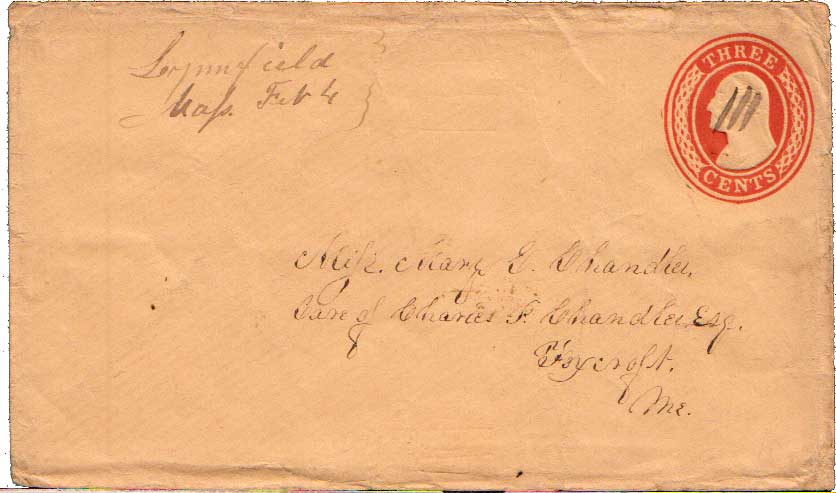 Lynnfield
Mass. Feb 4
THREE
CENTS
Miss. Mary E. Chandler,
Care of Charles P. Chandler Esq.
Foxcroft.
Me.